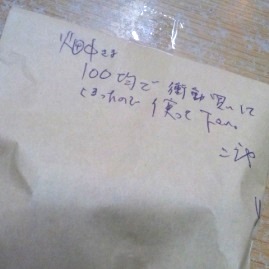 畑中さま
100均で 衝動買いして
しまったので 使って下さい。